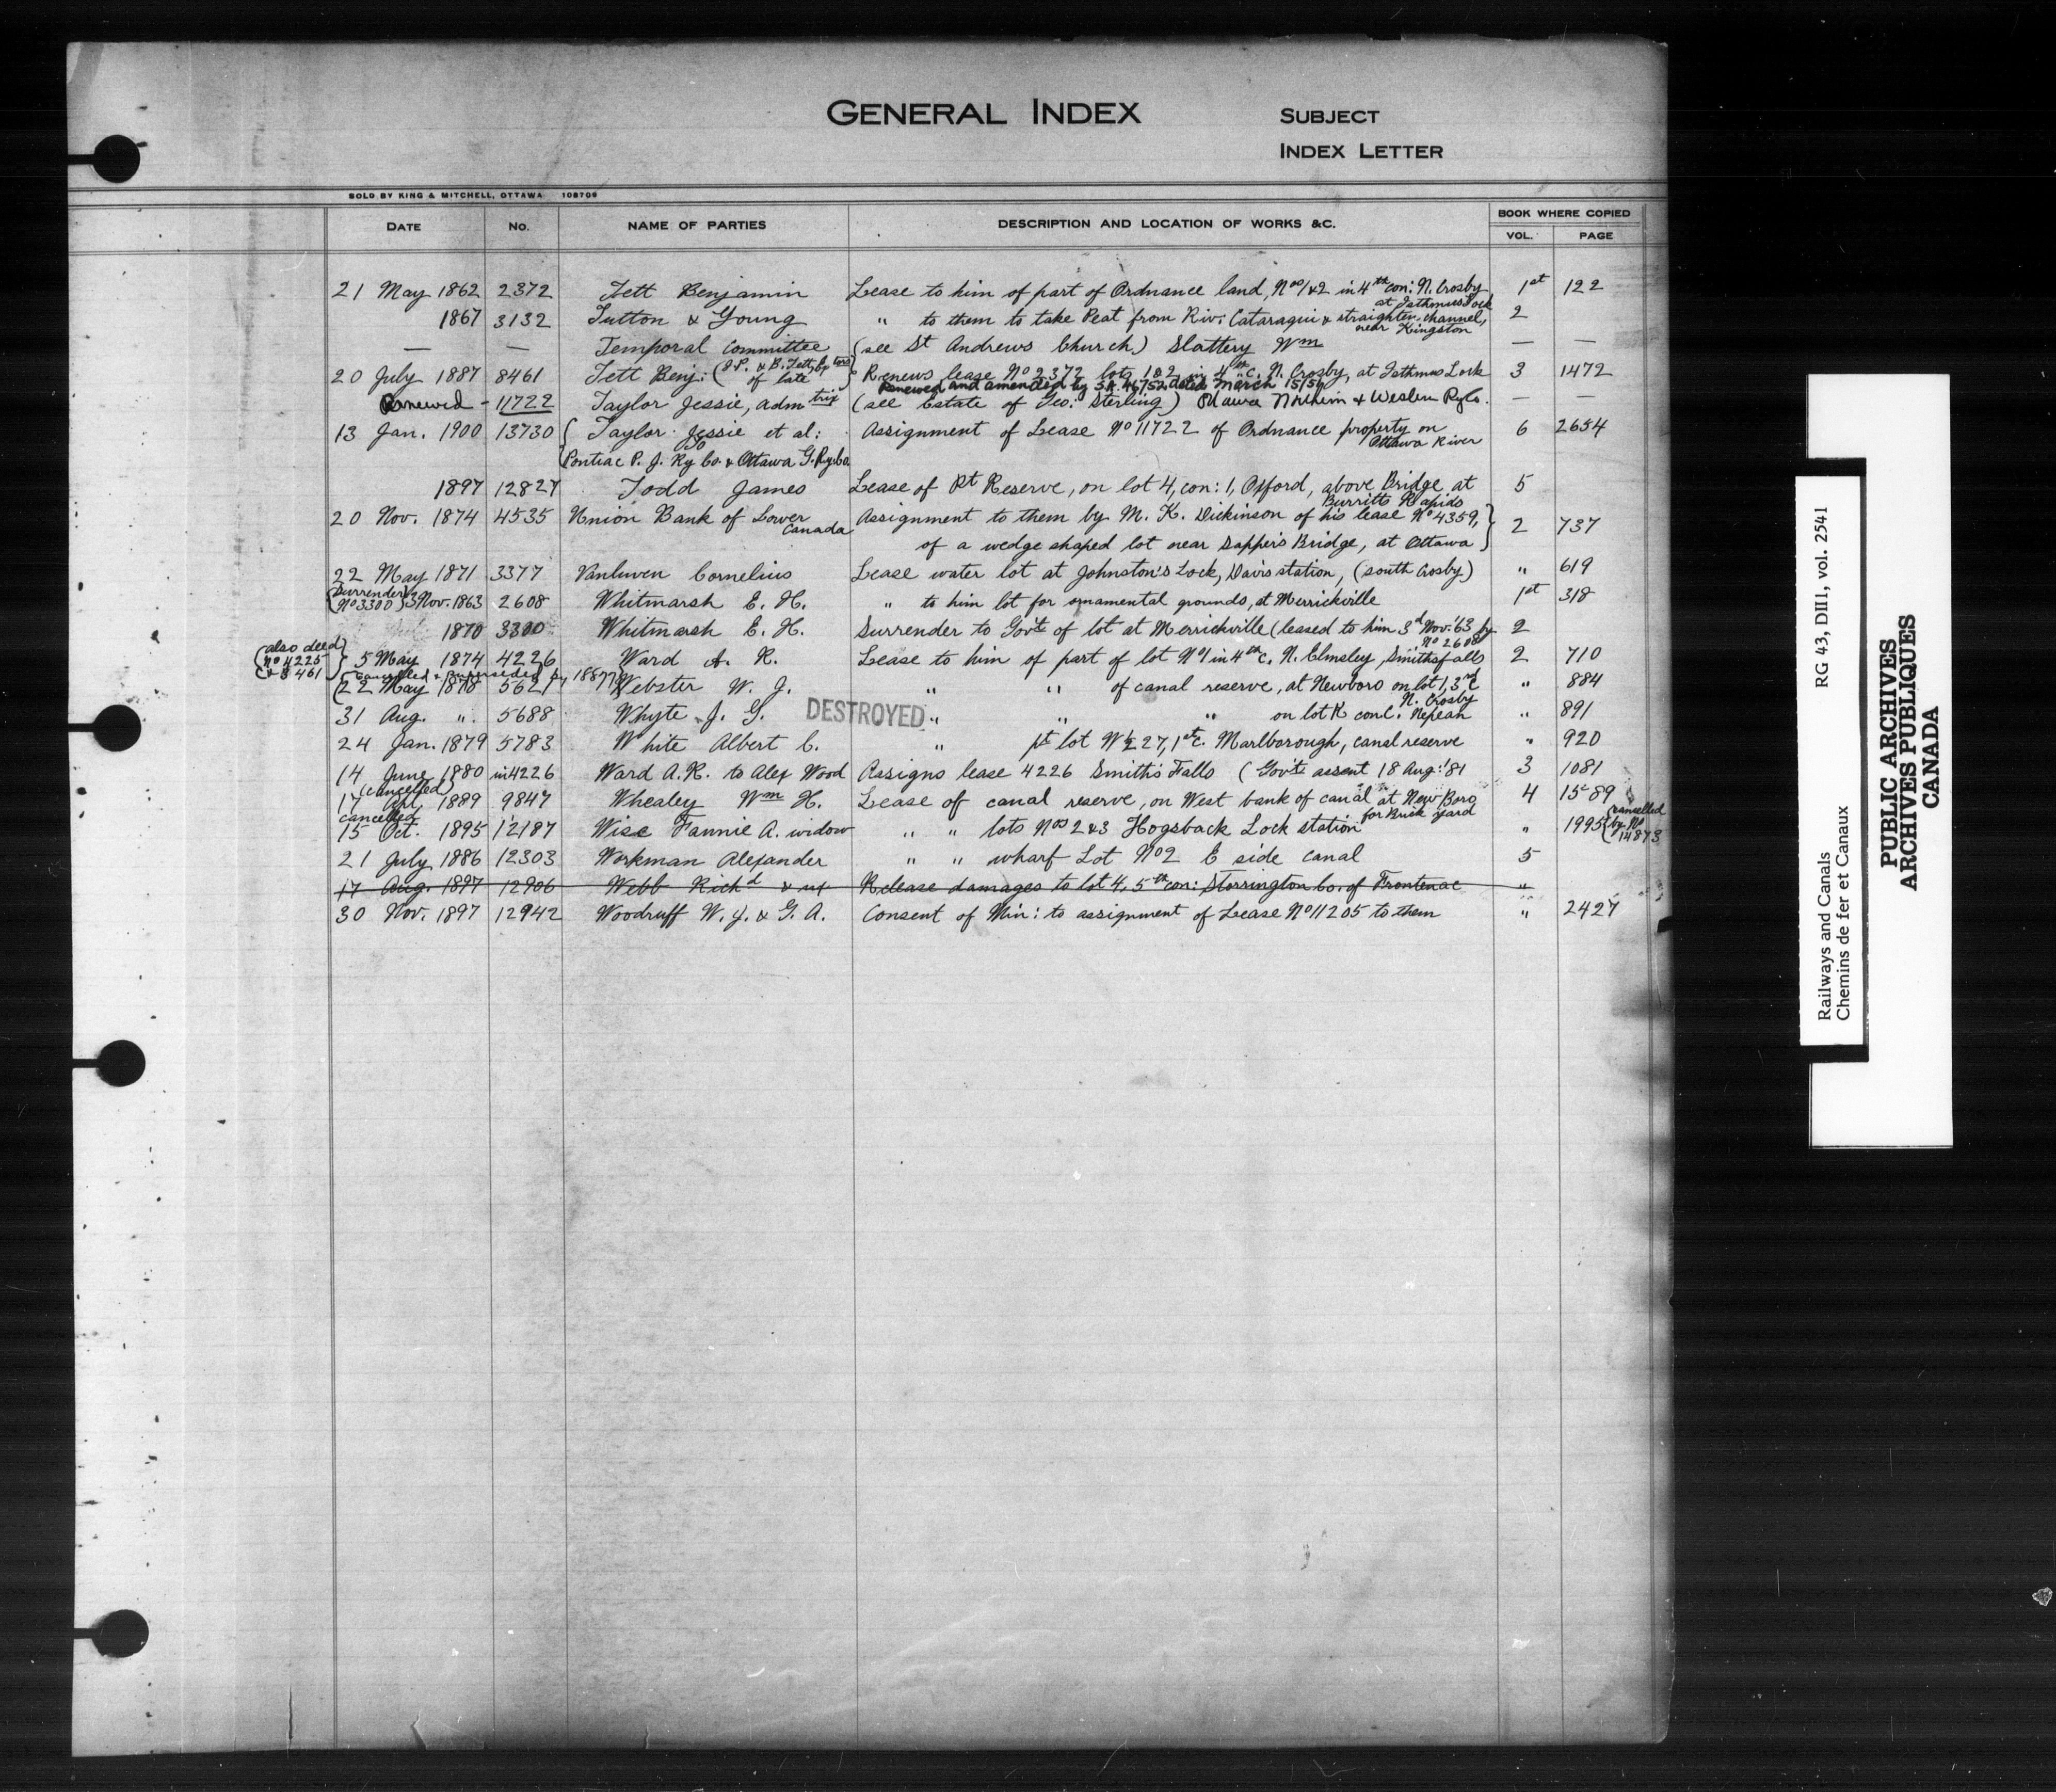 GENERAL INDEX
SUBJECT
INDEX LETTER
SOLD BY KING & MITCHELL, OTTAWA 108706
DATE No. NAME OF PARTIES DESCRIPTION AND LOCATION OF WORKS &C. BOOK WHERE COPIED
VOL. PAGE
21 May 1862 2372 Tett Benjamin Lease to him of part of Ordnance land, Nos 1 & 2 in 4th con: N. Crosby 1st 122
at Isthmus Lock
1867 3132 Sutton & Young " to them to take Peat from Riv: Cataraqui & straighten channel, 2
near Kingston
— — Temporal Committee (see St Andrews Church) Slattery Wm — —
20 July 1887 8461 Tett Benj: (J.P. & B. Tett, Extors of late) Renews lease No 2372 lots 1 & 2 in 4th C. N. Crosby, at Isthmus Lock 3 1472
Renewed and amended by S.R. 46752 dated March 15/54
Renewed - 11722 Taylor Jessie, admtrix (see Estate of Geo: Sterling) Ottawa Northern & Western Ry Co. — —
13 Jan. 1900 13730 { Taylor Jessie et al: Assignment of Lease No 11722 of Ordnance property on 6 2654
to Ottawa River
Pontiac P. J. Ry Co. & Ottawa G. Ry Co.
1897 12827 Todd James Lease of Rt Reserve, on lot 4, con: 1, Oxford, above Bridge at 5
Burritts Rapids
20 Nov. 1874 4535 Union Bank of Lower Canada Assignment to them by M. K. Dickinson of his lease No 4359, } 2 737
of a wedge shaped lot near Sapper's Bridge, at Ottawa
22 May 1871 3377 Vanluven Cornelius Lease water lot at Johnston's Lock, Davis station, (south Crosby) " 619
(Surrender No 3300) 3 Nov. 1863 2608 Whitmarsh E. H. " to him lot for ornamental grounds, at Merrickville 1st 318
1870 3300 Whitmarsh E. H. Surrender to Gov't of lot at Merrickville (leased to him 3d Nov. '63 by 2
No 2608
(also deed No 4225 & 8461) 5 May 1874 4226 Ward A. R. Lease to him of part of lot No 1 in 4th C. N. Elmsley, Smiths falls 2 710
(Cancelled & superseded by 18877)
22 May 1878 5621 Webster W. J. " " of canal reserve, at Newboro on lot 1, 3rd C " 884
N. Crosby
31 Aug. " 5688 Whyte J. G. DESTROYED " " " on lot K con C. Nepean " 891
24 Jan. 1879 5783 White Albert C. " pt lot W½ 27, 1st C. Marlborough, canal reserve " 920
14 June 1880 in 4226 Ward A. R. to Alex Wood Assigns lease 4226 Smith's Falls (Gov't assent 18 Aug: '81 3 1081
(cancelled)
17 Oct, 1889 9847 Whealey Wm H. Lease of canal reserve, on West bank of canal at New Boro 4 1589
for Brick yard
cancelled
15 Oct. 1895 12187 Wise Fannie A. widow " " lots Nos 2 & 3 Hogsback Lock station " 1995 (cancelled by No 14873
21 July 1886 12303 Workman Alexander " " wharf Lot No 2 E side canal 5
17 Aug. 1897 12906 Webb Richd & ux Release damages to lot 4, 5th con: Storrington Co. of Frontenac "
30 Nov. 1897 12942 Woodruff W. J. & G. A. Consent of Min: to assignment of Lease No 11205 to them " 2427
RG 43, DIII, vol. 2541
Railways and Canals
Chemins de fer et Canaux
PUBLIC ARCHIVES
ARCHIVES PUBLIQUES
CANADA